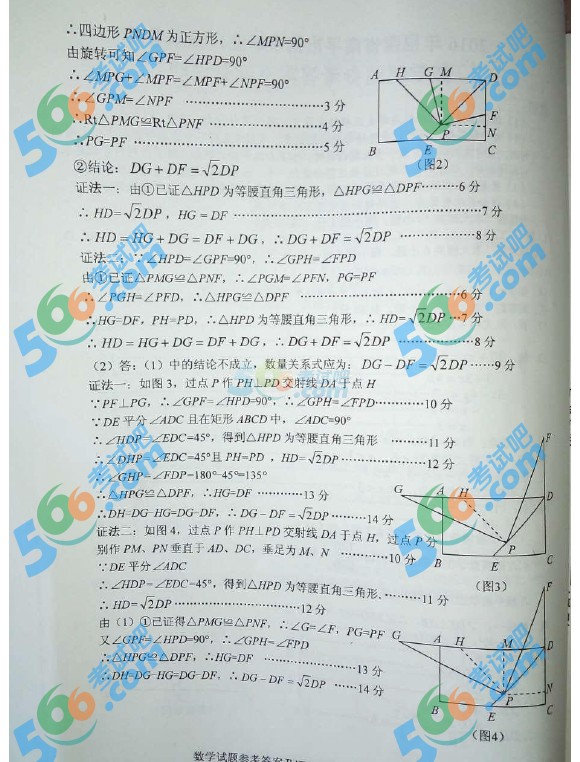 ∴四边形 PNDM 为正方形，∴∠MPN=90°
由旋转可知∠GPF=∠HPD=90°
∴∠MPG+∠MPF=∠MPF+∠NPF=90°
∴∠GPM=∠NPF ……………………3 分
∴Rt△PMG≌Rt△PNF ……………………4 分
∴PG=PF ……………………5 分
A H G M D
F
P N
B E C
（图2）
②结论：DG+DF=√2DP
证法一：由①已证△HPD 为等腰直角三角形，△HPG≌△DPF………6 分
∴ HD=√2DP，HG = DF ……………………7 分
∴ HD = HG + DG = DF + DG，∴DG + DF = √2DP ……………8 分
证法二：∵∠HPD=∠GPF=90°，∴∠GPH=∠FPD
由①已证△PMG≌△PNF，∴∠PGM=∠PFN，PG=PF
∴∠PGH=∠PFD，∴△HPG≌△DPF ……………………6 分
∴HG=DF，PH=PD，∴△HPD 为等腰直角三角形，∴ HD=√2DP …7 分
∴ HD = HG + DG = DF + DG，∴DG + DF = √2DP ……………8 分
（2）答：（1）中的结论不成立，数量关系式应为：DG－DF=√2DP ……9 分
证法一：如图 3，过点 P 作 PH⊥PD 交射线 DA 于点 H
∵PF⊥PG，∴∠GPF=∠HPD=90°，∴∠GPH=∠FPD…………10 分
∵DE 平分∠ADC 且在矩形 ABCD 中，∠ADC=90°
∴∠HDP=∠EDC=45°，得到△HPD 为等腰直角三角形 ………11 分
∴∠DHP=∠EDC=45°且 PH=PD ，HD=√2DP ……………………12 分
∴∠GHP=∠FDP=180°-45°=135°
∴△HPG≌△DPF，∴HG=DF ……………13 分
∴DH=DG-HG=DG-DF，∴DG－DF=√2DP …………14 分
F
G A H D
P
B E C
（图3）
证法二：如图 4，过点 P 作 PH⊥PD 交射线 DA 于点 H，过点 P 分
别作 PM、PN 垂直于 AD、DC，垂足为 M、N ……………10 分
∵DE 平分∠ADC
∴∠HDP=∠EDC=45°，得到△HPD 为等腰直角三角形．………11 分
∴ HD=√2DP……………………12 分
由（1）①已证得△PMG≌△PNF，∴∠G=∠F，PG=PF
又∠GPF=∠HPD=90°，∴∠GPH=∠FPD
∴△HPG≌△DPF，∴HG=DF ……………………13 分
∴DH=DG-HG=DG-DF，∴DG－DF=√2DP ……14 分
F
G A H M D
P N
B E C
（图4）
数学试题参考答案
566考试吧
.com